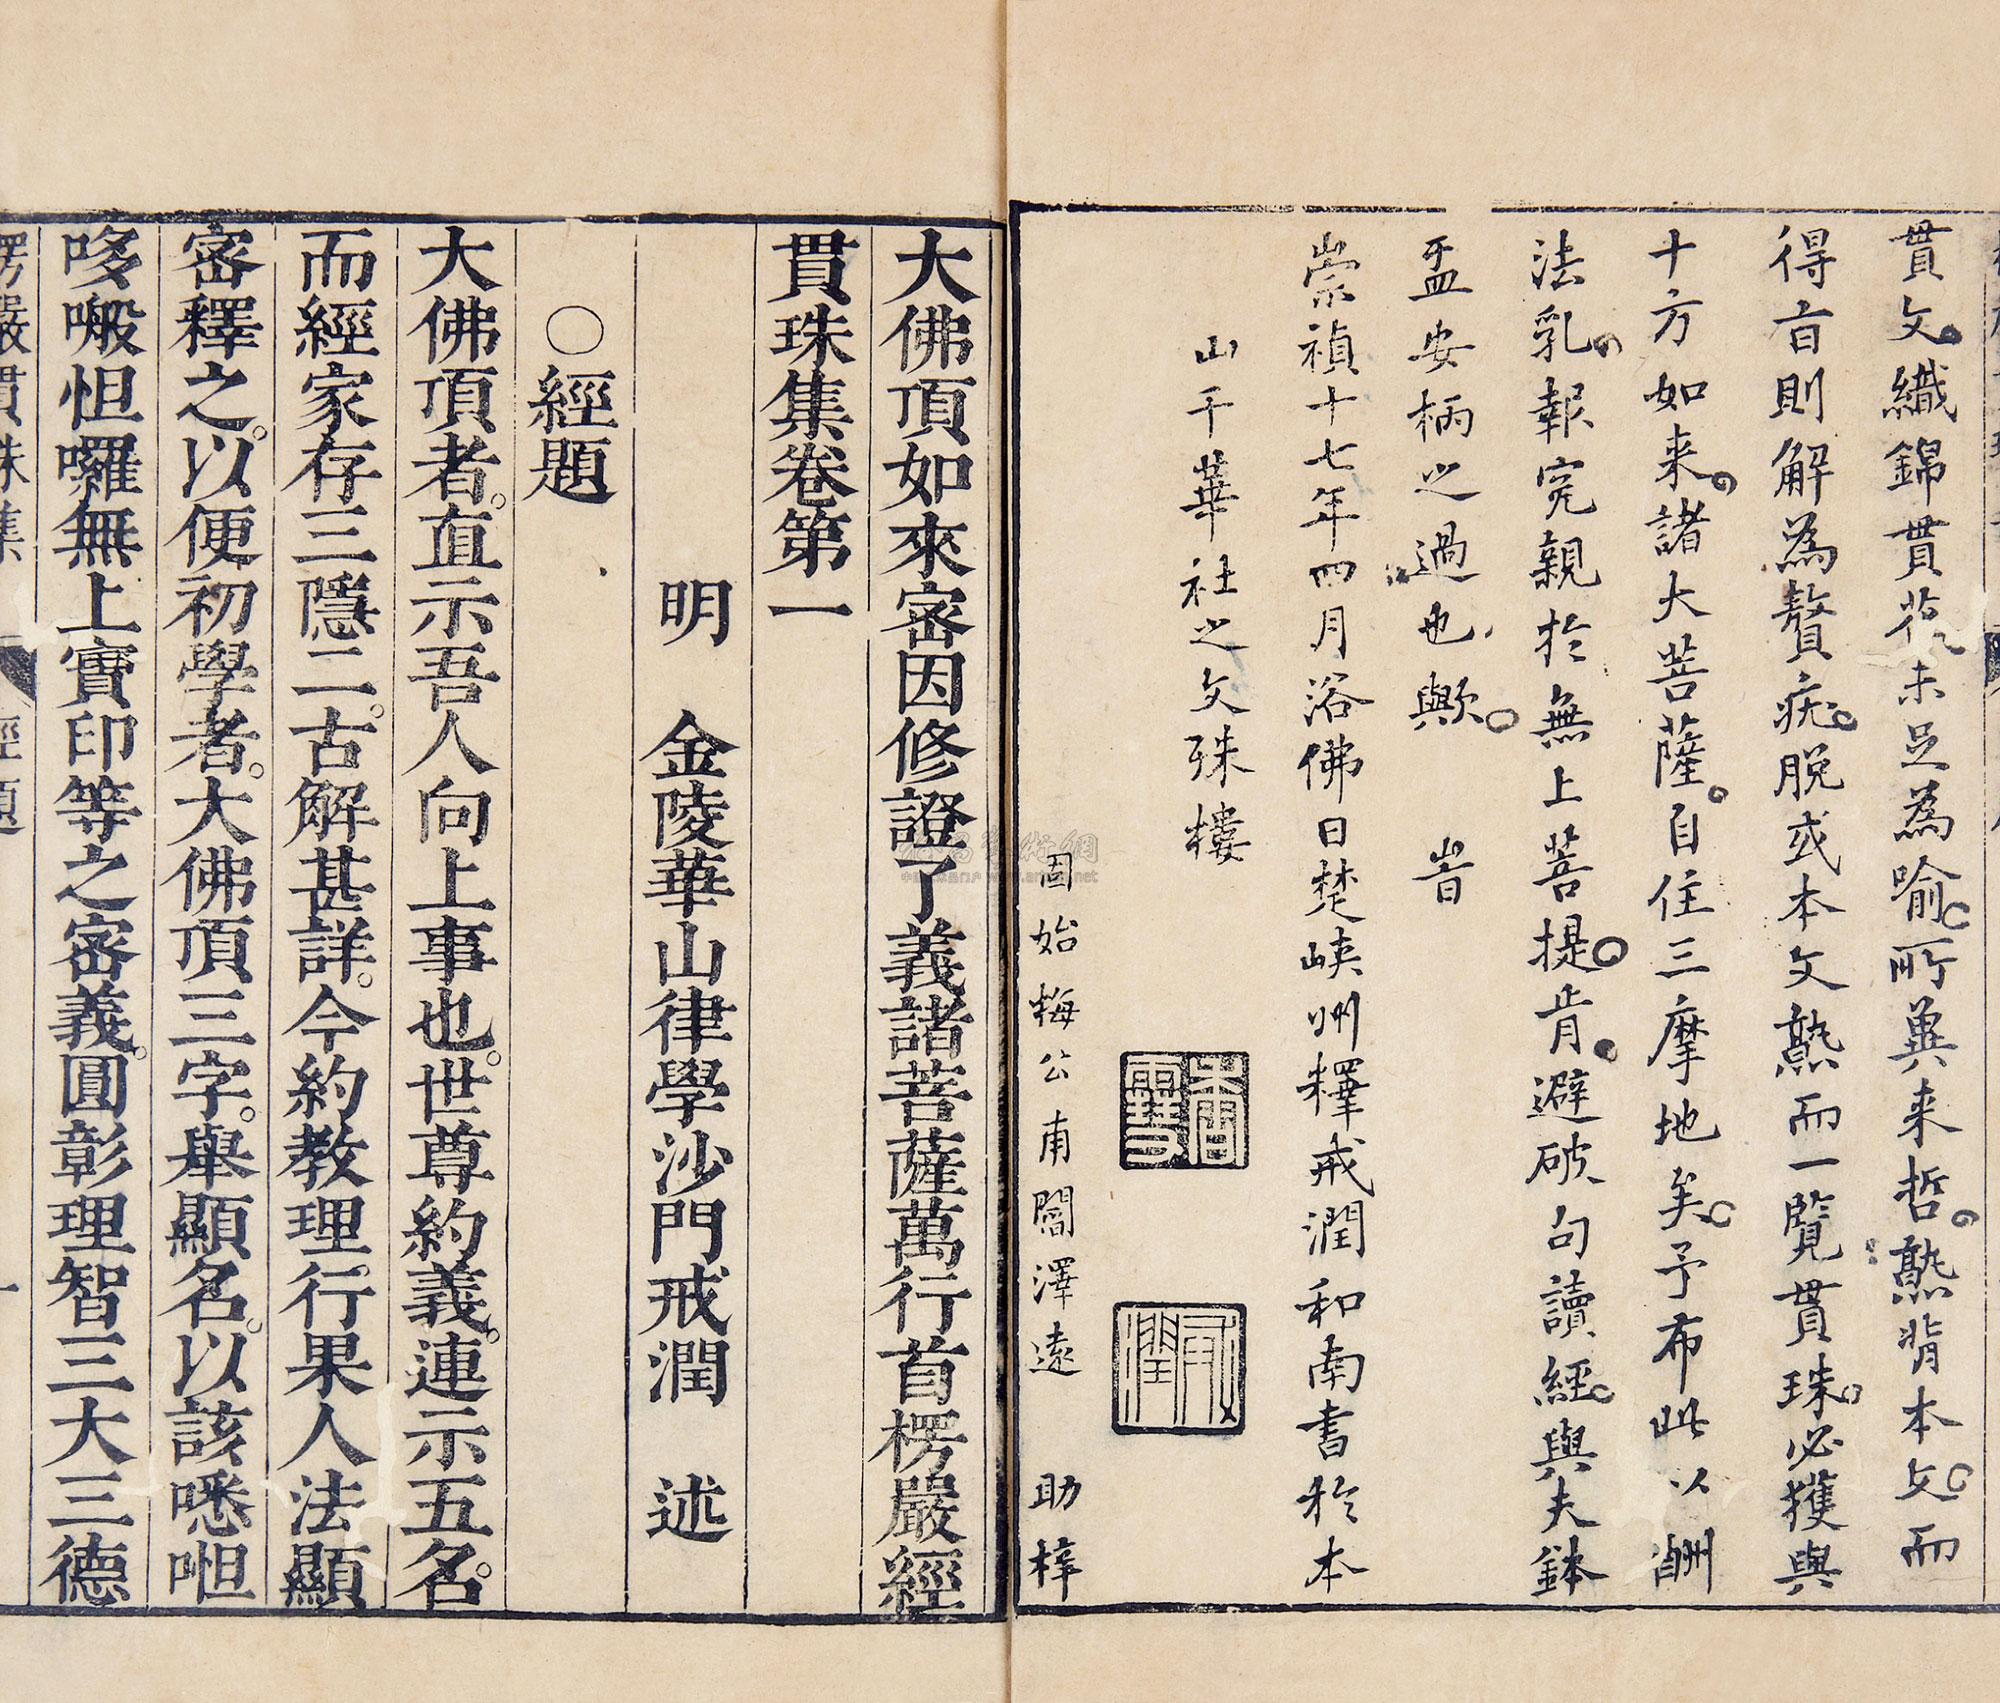 貫文織錦貫花未足為喻所冀来哲熟背本文而
得旨則解為贅疣脱或本文熟而一覧貫珠必獲與
十方如来諸大菩薩自住三摩地矣予布此以酬
法乳報寃親扵無上菩提肯避破句讀經與夫鉢
盂安柄之過也歟 旹
崇禎十七年四月浴佛日楚峽州釋戒潤和南書於本
山千華社之文殊樓
戒潤
固始梅公甫閻澤遠 助梓
大佛頂如來密因修證了義諸菩薩萬行首楞嚴經
貫珠集卷第一
明 金陵華山律學沙門戒潤 述
○經題
大佛頂者直示吾人向上事也世尊約義連示五名
而經家存三隱二古解甚詳今約教理行果人法顯
密釋之以便初學者大佛頂三字舉顯名以該㗭呾
哆嚩怛囉無上寶印等之密義圓彰理智三大三德
楞嚴貫珠集 經題 一